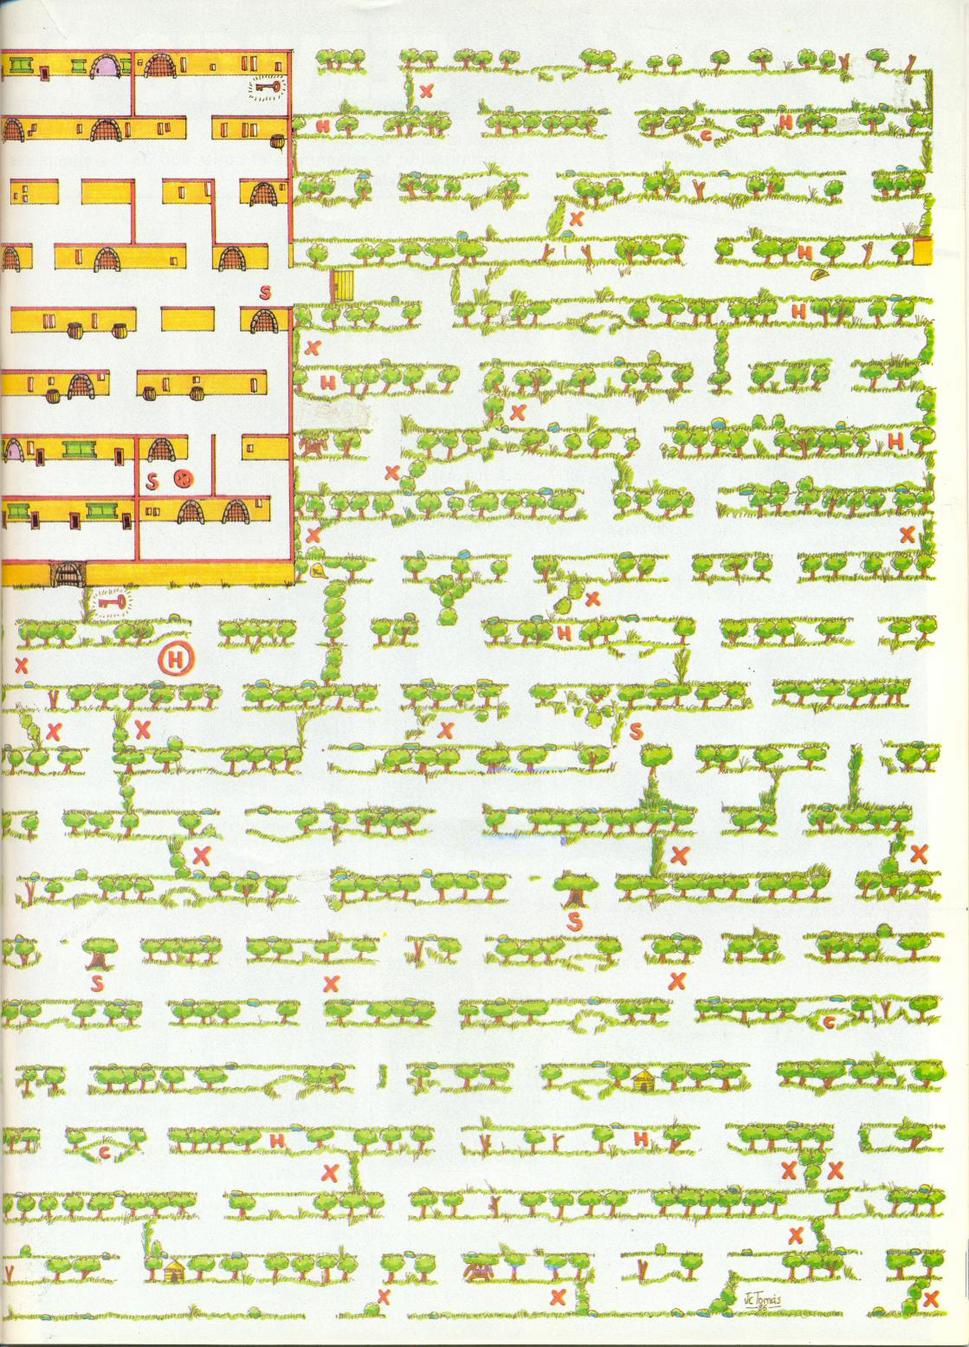 X
H
H
C
X
H
S
H
X
H
X
H
X
S
X
X
X
H
X
H
X
X
X
S
X
X
X
S
S
X
X
C
H
H
C
X
X
X
X
X
X
X
JC Tomás